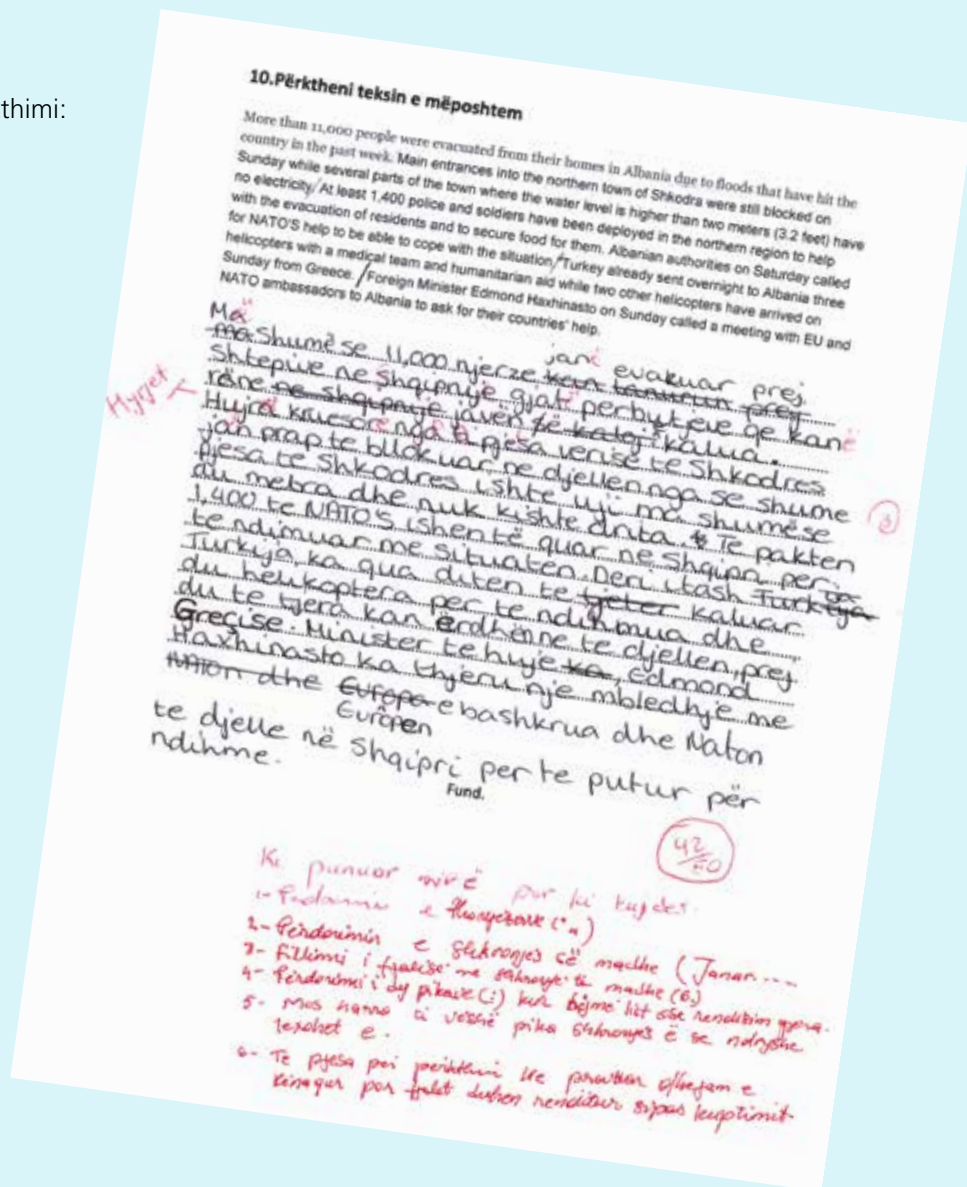 thimi:
10.Përktheni teksin e mëposhtem
More than 11,000 people were evacuated from their homes in Albania due to floods that have hit the
country in the past week. Main entrances into the northern town of Shkodra were still blocked on
Sunday while several parts of the town where the water level is higher than two meters (3.2 feet) have
no electricity/At least 1,400 police and soldiers have been deployed in the northern region to help
with the evacuation of residents and to secure food for them. Albanian authorities on Saturday called
for NATO'S help to be able to cope with the situation/Turkey already sent overnight to Albania three
helicopters with a medical team and humanitarian aid while two other helicopters have arrived on
Sunday from Greece. /Foreign Minister Edmond Haxhinasto on Sunday called a meeting with EU and
NATO ambassadors to Albania to ask for their countries' help.
Më
ma Shumë se 11,000 njerze janë evakuar prej
Shtepive ne Shqipnÿe gjatë perbytjeve qe kanë
rëne ne shqipnÿe javën kalua.
Hyrjet
Hujra kruesore nga pjesa verise te Shkodres
jan prap te bllokuar ne djellen nga se shume
pjesa te Shkodres ishte uji ma shumë se
du metra dhe nuk kishte drita. Te pakten
1,400 te NATO'S ishen të quar ne Shqipri per
te ndimuar me situaten. Deri itash Turkeya
Turkija, ka qua diten te tjeter kaluar
du helikoptera per te ndihmua dhe
du te tjera kan ërdhënne te djellen, prej
Greqise. Minister te huje ka, Edmond
Haxhinasto ka thjeru nje mbledhje me
dhe Europa e bashkrua dhe Naton
Europen
te djelle në Shqipri per te putur për
ndihme.
Fund.
42
Ki punuar mirë por ki kujdes.
1- e
2- Përdorimin e shkronjës së madhe (Janar....
3- Fillimi i fjalisë me shkronjë të madhe (6.)
4- Përdorimi i dy pikave (:) kur bëjmë list ose renditim gjera.
5- Mos harro ti vesh pika shkronjës ë se ndryshe
lexohet e.
6- Te pjesa per perkthimi e
kënaqur por fjalet duhen renditur sipas kuptimit